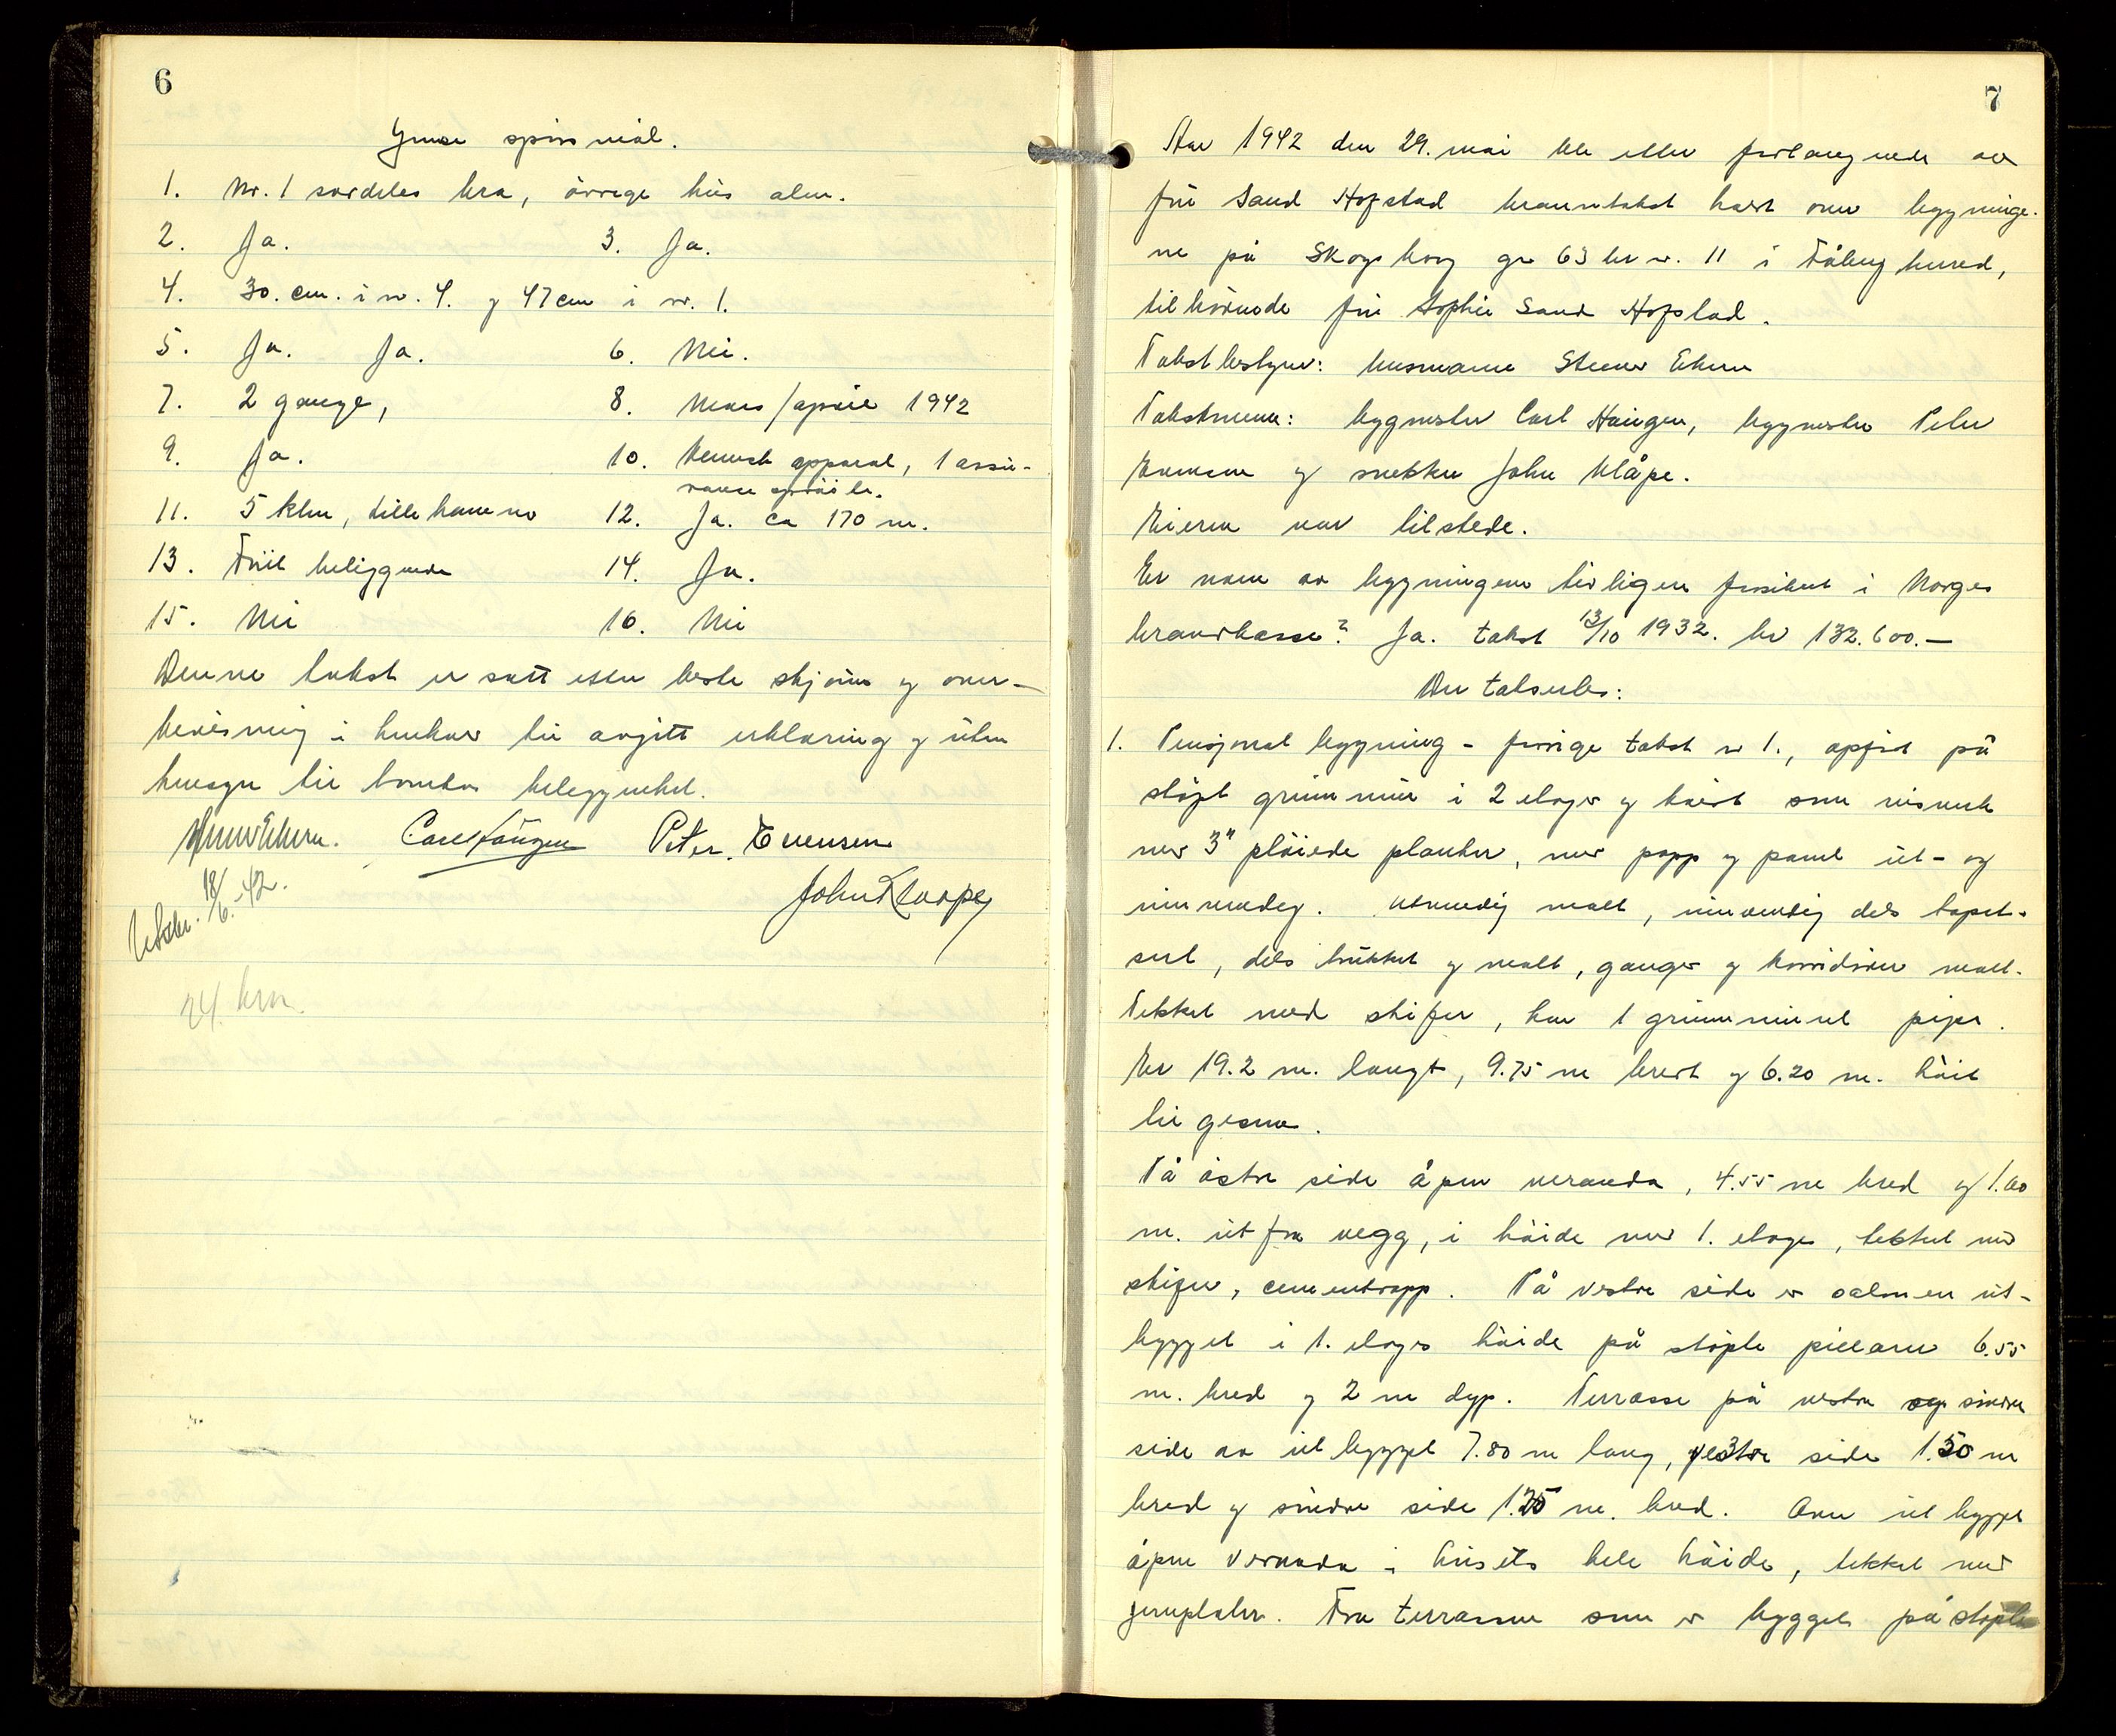 6
Ymse spørsmål.
1. Nr. 1 særdeles bra, övrige hus alm.
2. Ja. 3. Ja.
4. 30. cm. i nr. 4. og 47 cm i nr. 1.
5. Ja. Ja. 6. Nei.
7. 2 gange, 8. Mars/april 1942
9. Ja. 10. Minimax apparat, 1 assu-
ranse spröite.
11. 5 klm, Lillehammer 12. Ja. ca 170 m.
13. Fritt beliggende 14. Ja.
15. Nei 16. Nei
Denne takst er satt etter beste skjönn og over-
bevisning i henhold til avgitt erklæring og uten
hensyn til tomtens beleggenhet.
Carl Haugen Peter. Evensen
John Klaape
Utskr. 18/6.-42.
24. krn.
7
Aar 1942 den 29. mai ble etter forlangende av
fru Sand Hofstad branntakst holdt over bygninge-
ne på Skogsborg gr 63 br nr. 11 i Fåberg herred,
tilhörende fru Sophie Sand Hofstad.
Takstbestyrer: lensmann Steinar Ekern
Takstmenn: byggmester Carl Haugen, byggmester Peter
Evensen og snekker John Klåpe.
Eieren var tilstede.
Er noen av bygningene tidligere forsikret i Norges
brannkasse? Ja. takst 13/10 1932. kr 132.600.—
Der takseres:
1. Pensjonat bygning - forrige takst nr 1., opfört på
stöpt grunnmur i 2 etager og hvert som reisverk
med 3" plöiede planker, med papp og panel ut- og
innvendig. Utvendig malt, innvendig dels tapet-
sert, dels trukket og malt, ganger og korridorer malt.
Tekket med skifer, har 1 grunnmuret pipe.
Er 19.2 m. langt, 9.75 m bredt og 6.20 m. höit
til gesims.
På östre side åpen veranda, 4.55 m bred og 1.60
m. ut fra vegg, i höide med 1. etage, tekket med
skifer, cementtrapp. På vestre side er salongen ut-
bygget i 1. etages höide på stöpte pillarer 6.55
m. bred og 2 m dyp. Terrasse på vestre og söndre
side av utbygget 7.80 m lang, vestre side 1.50 m
bred og söndre side 1.25 m. bred. Over utbygget
åpen veranda i husets hele höide, tekket med
jernplater. Fra terrassen som er bygget på stöpte